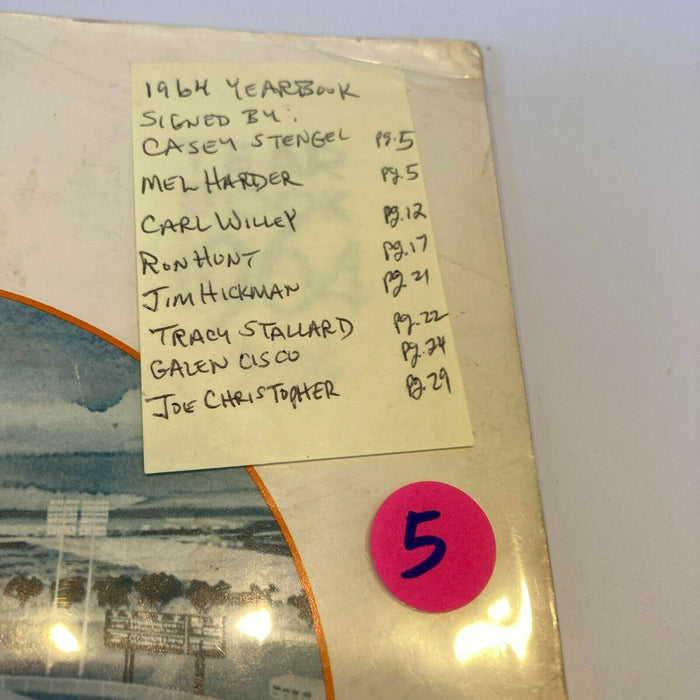 1964 YEARBOOK
SIGNED BY:
CASEY STENGEL pg.5
MEL HARDER pg.5
CARL WILLEY pg.12
RON HUNT pg.17
JIM HICKMAN pg.21
TRACY STALLARD pg.22
GALEN CISCO pg.24
JOE CHRISTOPHER pg.29
5